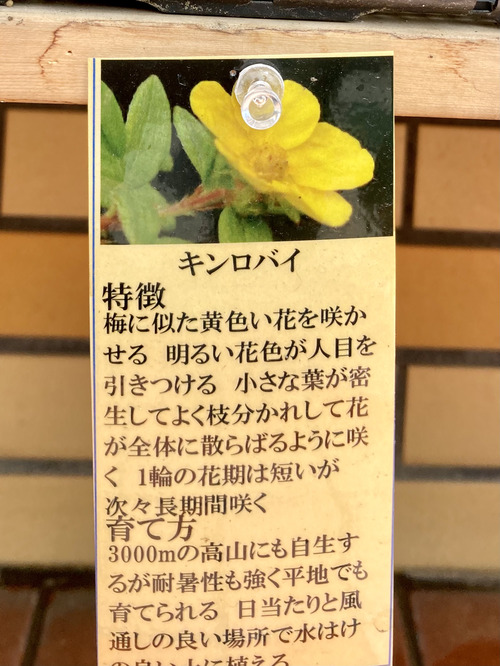 キンロバイ
特徴
梅に似た黄色い花を咲か
せる　明るい花色が人目を
引きつける　小さな葉が密
生してよく枝分かれして花
が全体に散らばるように咲
く　1輪の花期は短いが
次々長期間咲く
育て方
3000mの高山にも自生す
るが耐暑性も強く平地でも
育てられる　日当たりと風
通しの良い場所で水はけ
の良い土に植える